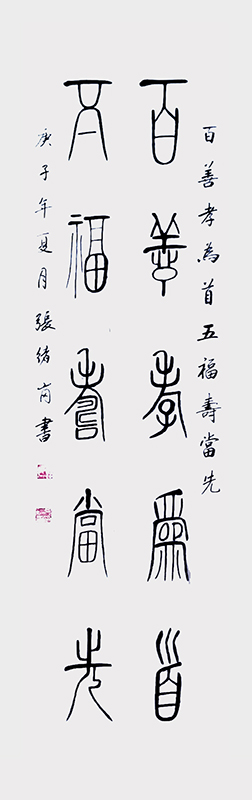 百善孝為首五福壽當先
百善孝為首
五福壽當先
庚子年夏月張緒商書